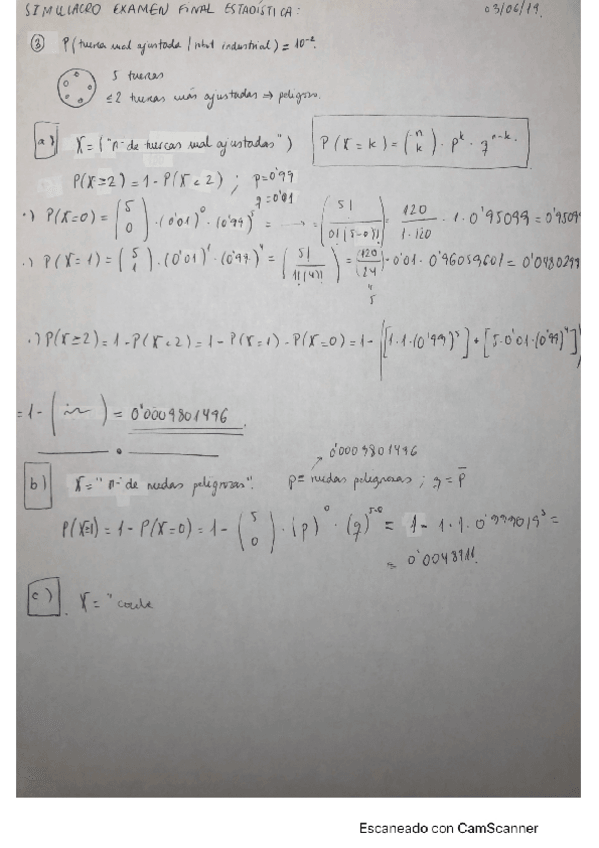 SIMULACRO EXAMEN FINAL ESTADÍSTICA: 03/06/19.
③ P(tuerca mal ajustada / robot industrial) = 10⁻².
5 tuercas
≤2 tuercas más ajustadas ⇒ peligroso.
a) X = ("nº de tuercas mal ajustadas") P(X = k) = (n k) · pᵏ · qⁿ⁻ᵏ.
P(X≥2) = 1 - P(X<2) ; p=0'99
q=0'01
·) P(X=0) = (5 0) · (0'01)⁰ · (0'99)⁵ = (5! / 0!(5-0)!) = 120 / 1·120 · 1 · 0'95099 = 0'95099
·) P(X=1) = (5 1) · (0'01)¹ · (0'99)⁴ = (5! / 1!(4)!) = (120 / 24) · 0'01 · 0'96059601 = 0'0480299
5
·) P(X≥2) = 1 - P(X<2) = 1 - P(X=1) - P(X=0) = 1 - [[1·1·(0'99)⁵] + [5·0'01·(0'99)⁴]]
= 1 - ( ) = 0'0009801496
0'0009801496
b) X = "nº de ruedas peligrosas". p = ruedas peligrosas ; q = p̅
P(X=1) = 1 - P(X=0) = 1 - (5 0) · (p)⁰ · (q)⁵⁻⁰ = 1 - 1 · 1 · 0'999019⁵ =
= 0'0048911.
c) X = "coche
Escaneado con CamScanner